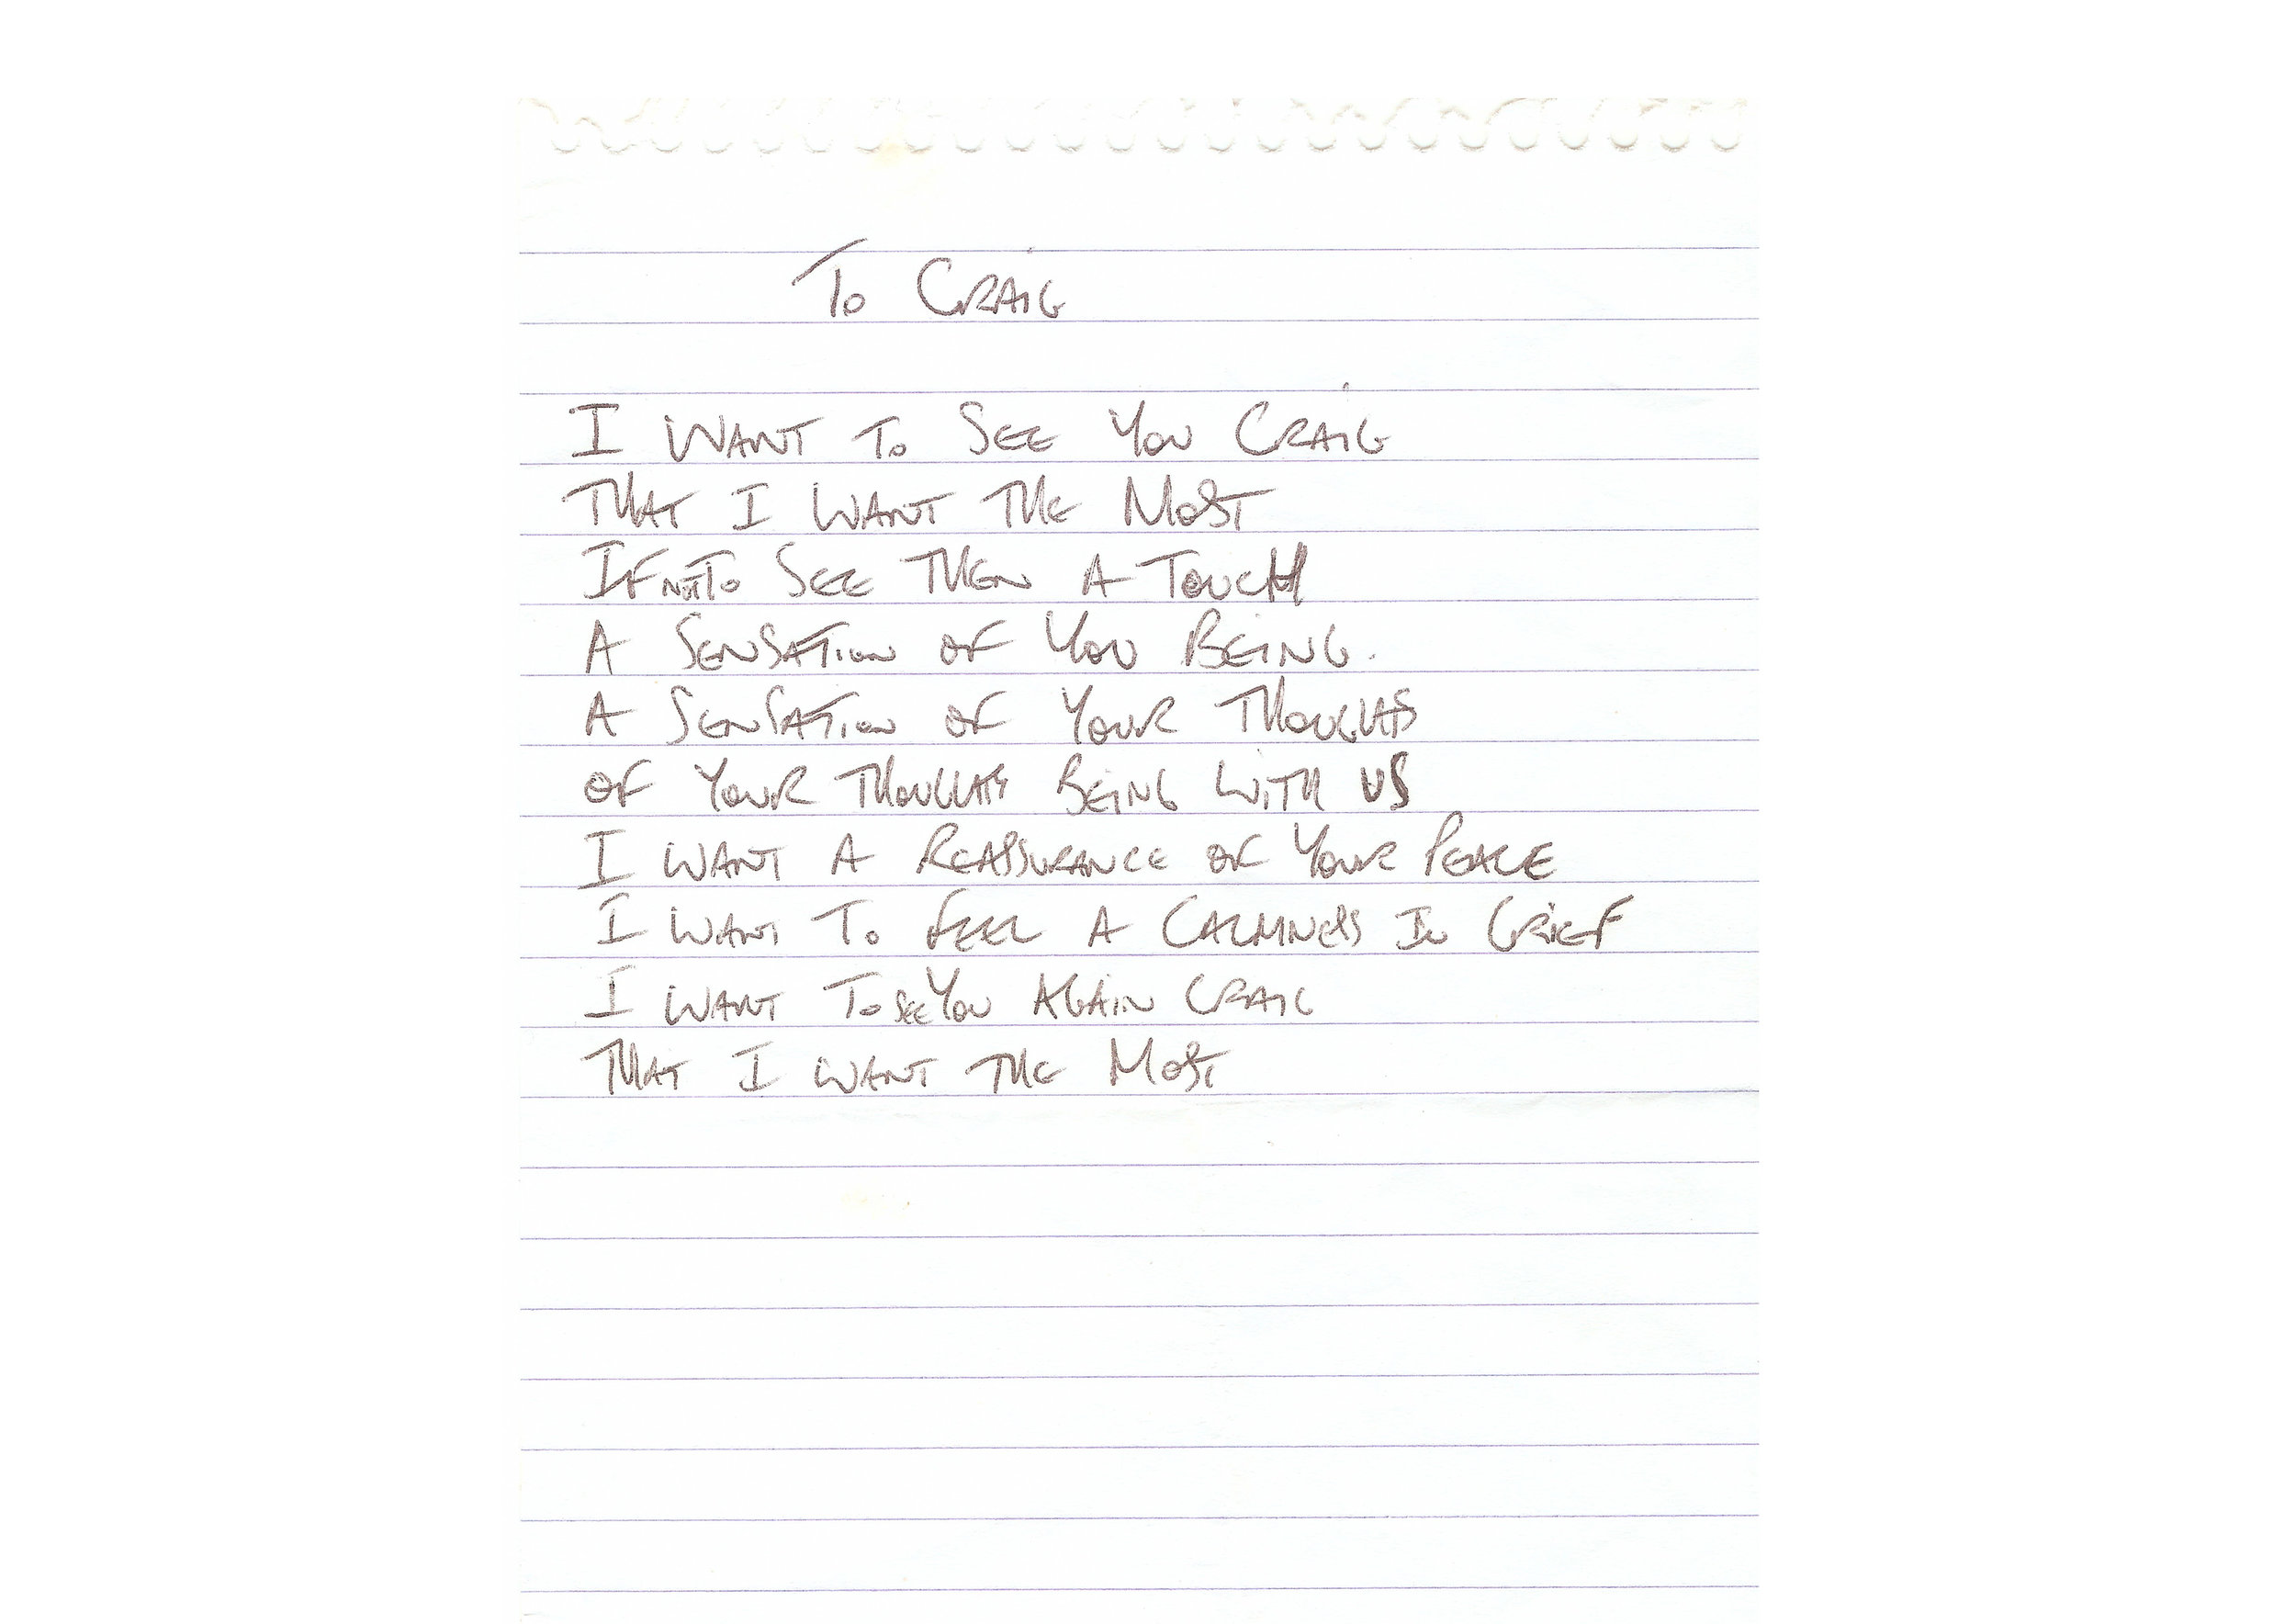 To CRAIG
I WANT To SEE YOU CRAIG
THAT I WANT THE MOST
IF NOT To SEE THEN A TOUCH
A SENSATION OF YOU BEING.
A SENSATION OF YOUR THOUGHTS
OF YOUR THOUGHTS BEING WITH US
I WANT A REASSURANCE OF YOUR PEACE
I WANT To FEEL A CALMNESS IN GRIEF
I WANT To SEE YOU AGAIN CRAIG
THAT I WANT THE MOST